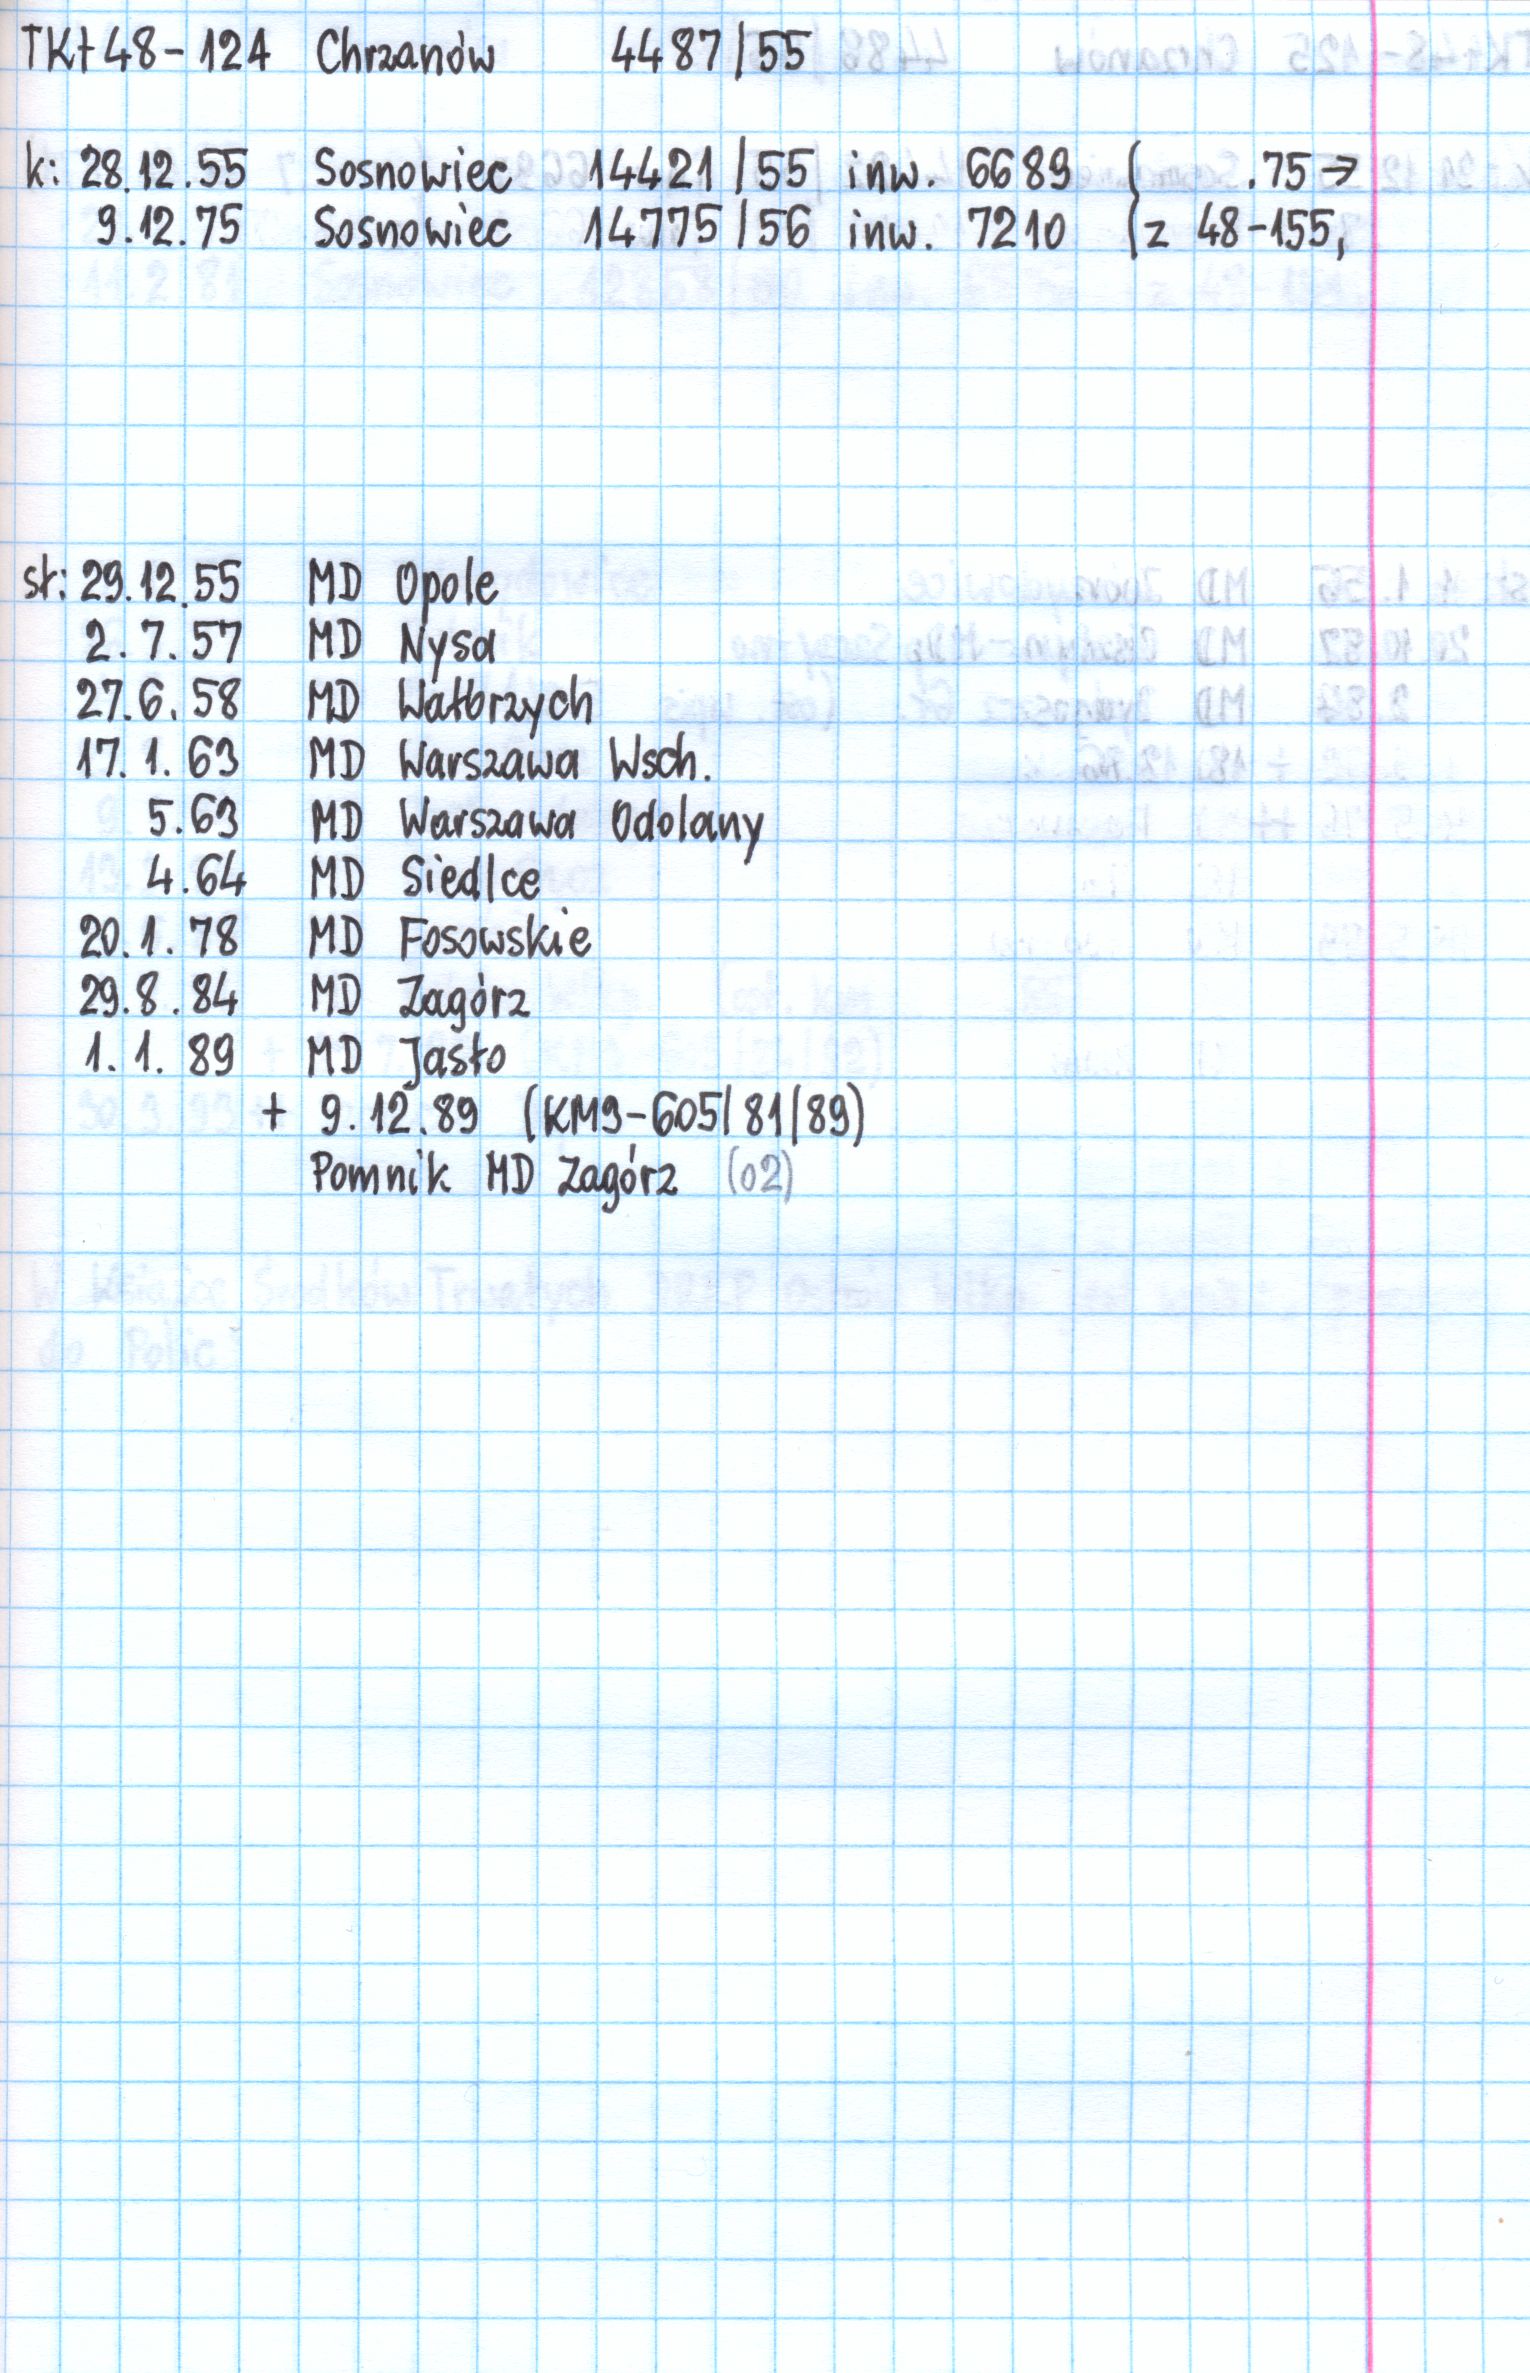 TKt48-124 Chrzanów 4487/55
k: 28.12.55 Sosnowiec 14421/55 inw. 6689 ( .75→
9.12.75 Sosnowiec 14775/56 inw. 7210 (z 48-155,
st: 29.12.55 MD Opole
2.7.57 MD Nysa
27.6.58 MD Wałbrzych
17.1.63 MD Warszawa Wsch.
5.63 MD Warszawa Odolany
4.64 MD Siedlce
20.1.78 MD Fosowskie
29.8.84 MD Zagórz
1.1.89 MD Jasło
+ 9.12.89 (KM9-605/81/89)
Pomnik MD Zagórz (02)